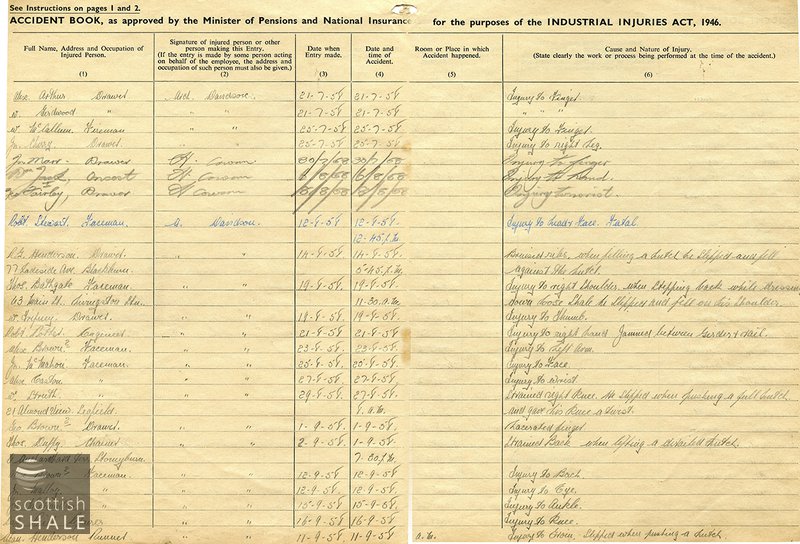 See Instructions on pages 1 and 2.
ACCIDENT BOOK, as approved by the Minister of Pensions and National Insurance for the purposes of the INDUSTRIAL INJURIES ACT, 1946.
Full Name, Address and Occupation of Injured Person. (1)
Signature of injured person or other person making this Entry. (If the entry is made by some person acting on behalf of the employee, the address and occupation of such person must also be given.) (2)
Date when Entry made. (3)
Date and time of Accident. (4)
Room or Place in which Accident happened. (5)
Cause and Nature of Injury. (State clearly the work or process being performed at the time of the accident.) (6)
Arthur Drawer Davidson. 21-7-58 21-7-58 Injury to Finger
" " " 21-7-58 21-7-58 " " "
W. McCallum Fireman " " 25-7-58 25-7-58 Injury to Finger
Jn. Drawer 25-7-58 25-7-58 Injury to right Leg.
Jn Marr Drawer 30/7/58 30/7/58 Injury to finger
Jack, Injury to hand
Fairley, Drawer Injury
Robt. Stewart. Faceman. Davidson. 12-8-58 12-8-58 Injury to Head & Face. Fatal.
12-45 p.m.
Henderson Drawer " " 14-8-58 14-8-58 Bruised ribs, when filling a hutch he slipped and fell
77 Blackburn 5-45 p.m. against the hutch.
Thos. Bathgate Faceman " " 19-8-58 19-8-58 Injury to right Shoulder, when stepping back while dressing
63 Main St. Livingston Stn. 11-30 a.m. down loose Shale he slipped and fell on his Shoulder.
Drawer " " 18-8-58 19-8-58 Injury to Thumb.
Robt. Engineer " " 21-8-58 21-8-58 Injury to right hand Jammed between Girder & rail.
Alex Brown Faceman " " 23-8-58 23-8-58 Injury to Left Arm.
Jn. McMahon Faceman " " 25-8-58 25-8-58 Injury to Face.
Alex " " " 27-8-58 27-8-58 Injury to wrist.
W. Smith " " " 29-8-58 27-8-58 Strained right Knee. He slipped when pushing a full hutch
21 Almond View Seafield. a.m. and gave his Knee a twist.
Geo Brown Drawer " " 1-9-58 1-9-58 Lacerated finger
Thos. Duffy Chainer " " 2-9-58 1-9-58 Strained Back when lifting a derailed hutch.
Stoneyburn. 7.30 p.m.
Faceman " " 12-9-58 12-9-58 Injury to Back
" " 12-9-58 12-9-58 Injury to Eye.
" " 15-9-58 15-9-58 Injury to Ankle.
" " 16-9-58 16-9-58 Injury to Knee.
Henderson Runner " " 11-9-58 11-9-58 Slipped when pushing a hutch
scottish
SHALE